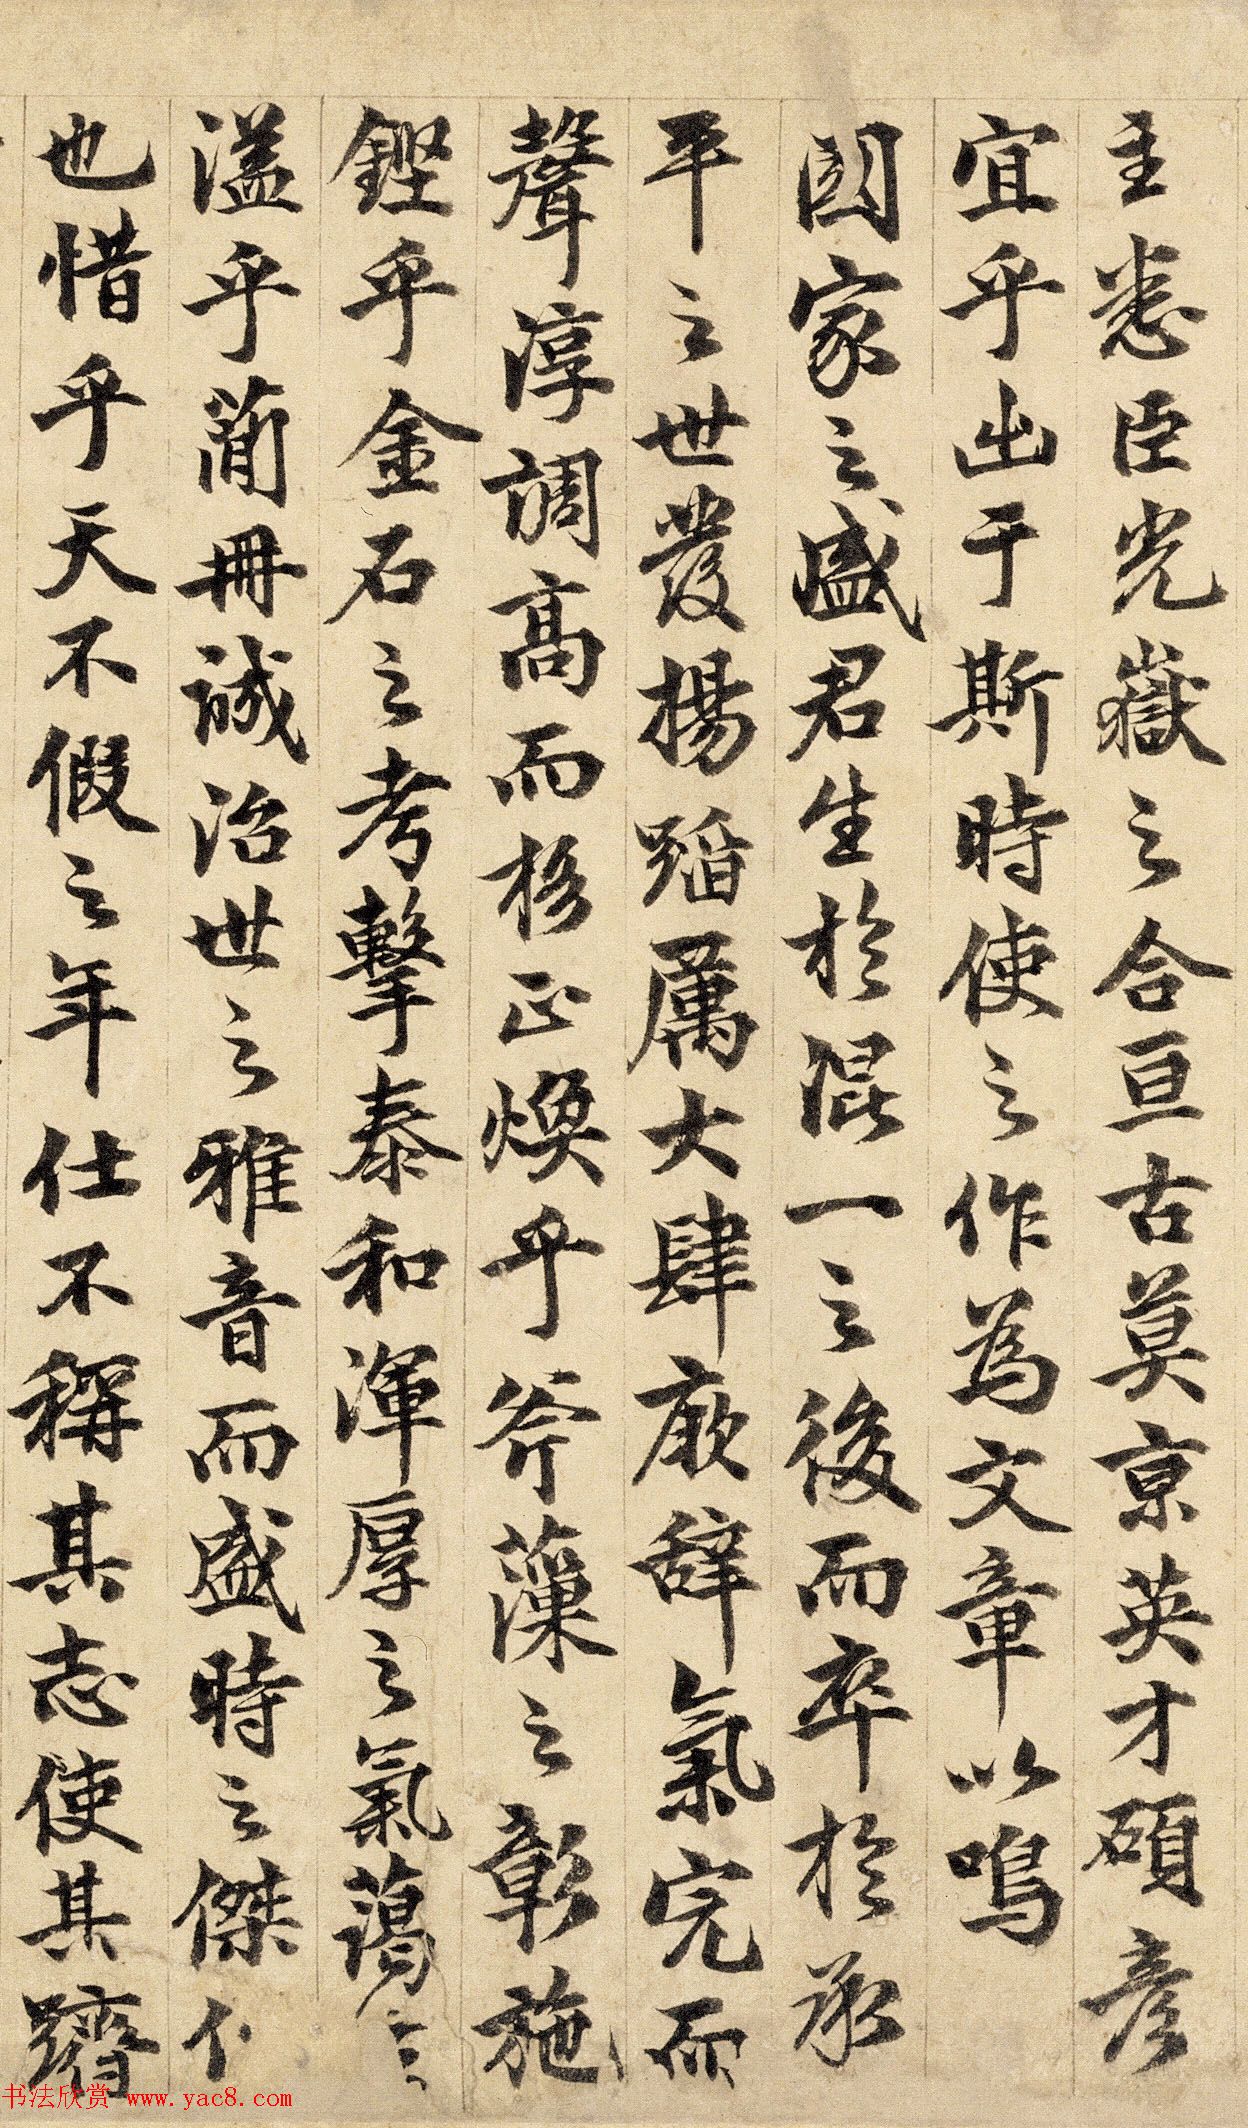 主悉臣光嶽之合亘古莫京英才碩彥
宜乎出于斯時使之作為文章以鳴
國家之盛君生於混一之後而卒於承
平之世發揚蹈厲大肆厥辭氣完而
聲淳調高而格正煥乎斧藻之彰施
鏗乎金石之考擊泰和渾厚之氣藹之
溢乎簡冊誠治世之雅音而盛時之傑作
也惜乎天不假之年仕不稱其志使其躋
书法欣赏 www.yac8.com